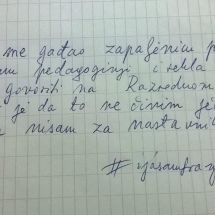 me gađao zapaljenim p
pedagoginji i rekla
govoriti na Razrednom
je da to ne činim je
nisam za nastavni
#ijasamfra